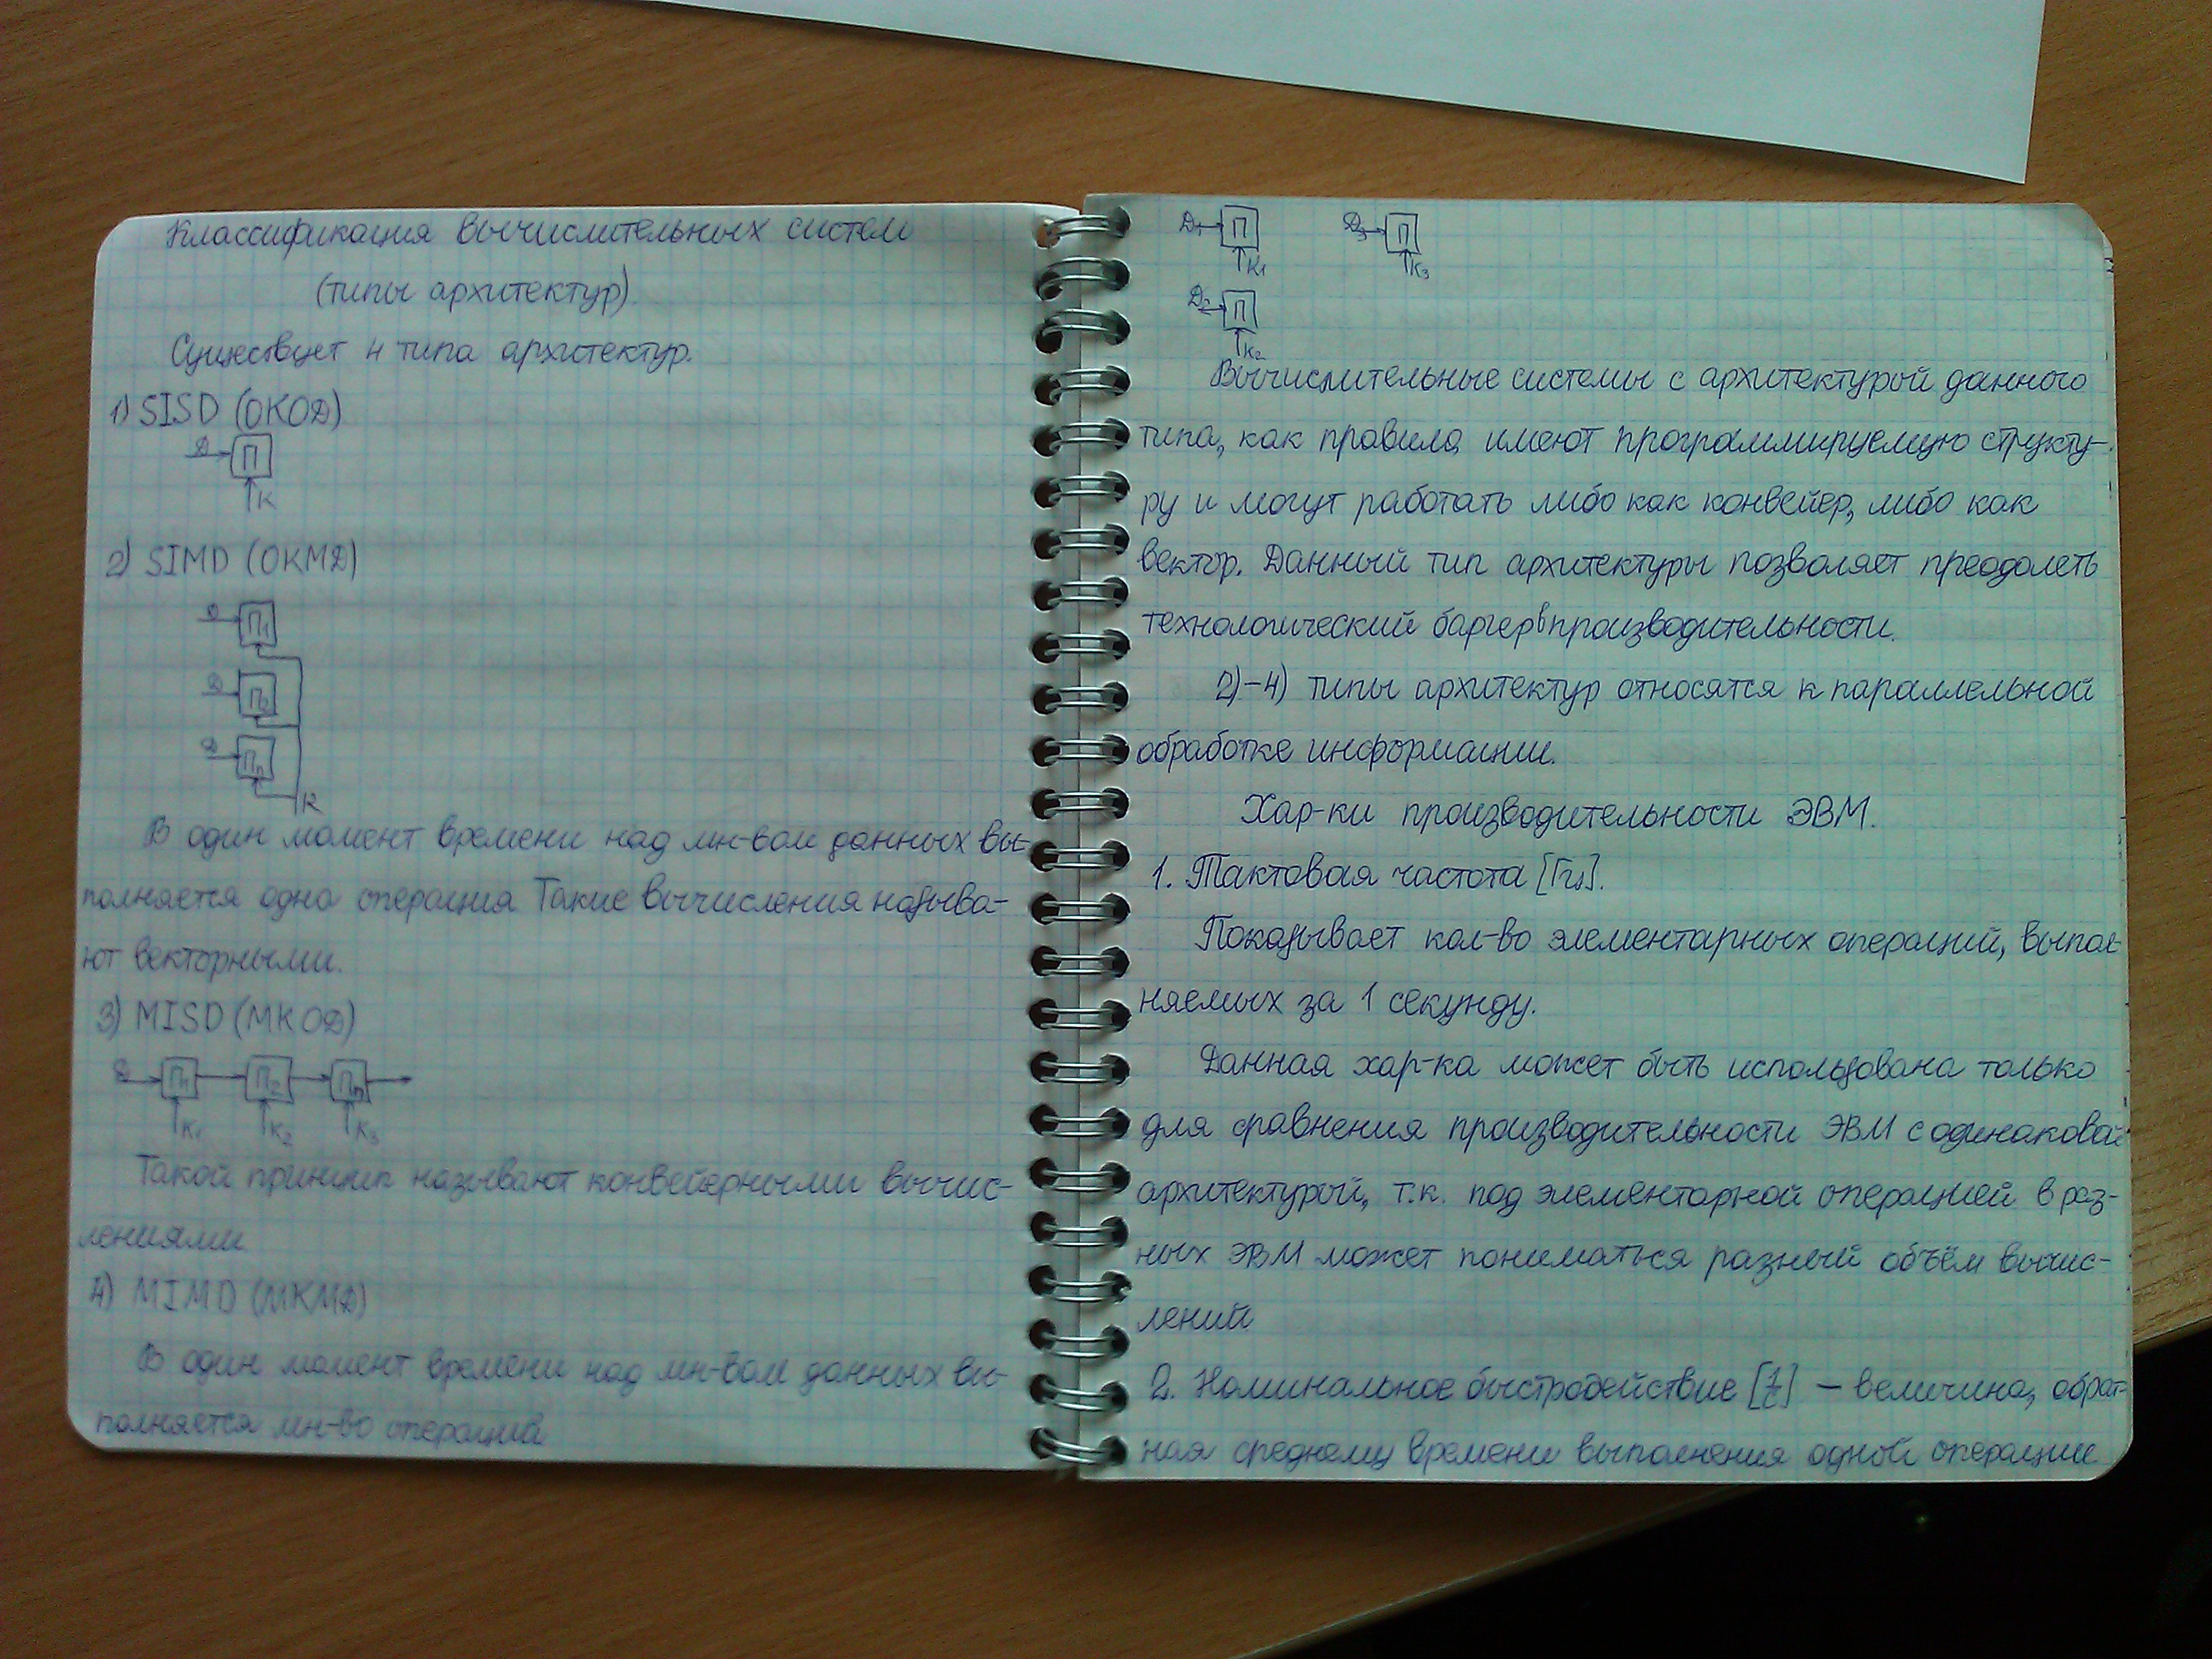 Классификация вычислительных систем
(типы архитектур)
Существует 4 типа архитектур.
1) SISD (ОКОД)
Д П
К
2) SIMD (ОКМД)
Д П1
Д П2
Д Пn
К
В один момент времени над мн-вом данных вы-
полняется одна операция Такие вычисления называ-
ют векторными.
3) MISD (МКОД)
Д П1 П2 Пn
К1 К2 К3
Такой принцип называют конвейерными вычис-
лениями
4) MIMD (МКМД)
В один момент времени над мн-вом данных вы-
полняется мн-во операций
Д1 П Д3 П
К1 К3
Д2 П
К2
Вычислительные системы с архитектурой данного
типа, как правило, имеют программируемую структу-
ру и могут работать либо как конвейер, либо как
вектор. Данный тип архитектуры позволяет преодолеть
технологический барьер в производительности.
2)-4) типы архитектур относятся к параллельной
обработке информации.
Хар-ки производительности ЭВМ.
1. Тактовая частота [Гц].
Показывает кол-во элементарных операций, выпол-
няемых за 1 секунду.
Данная хар-ка может быть использована только
для сравнения производительности ЭВМ с одинаковой
архитектурой, т.к. под элементарной операцией в раз-
ных ЭВМ может пониматься разный объём вычис-
лений
2. Номинальное быстродействие – величина, обрат-
ная среднему времени выполнения одной операции